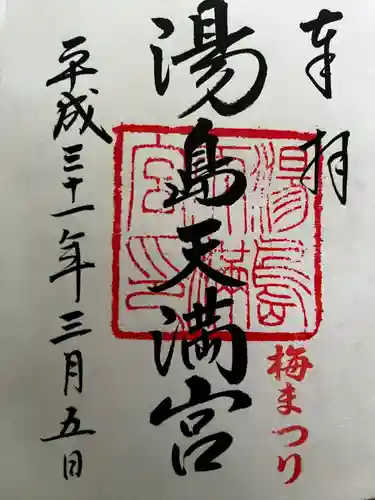 奉拝
湯島天満宮
湯島天満宮印
梅まつり
平成三十一年三月五日